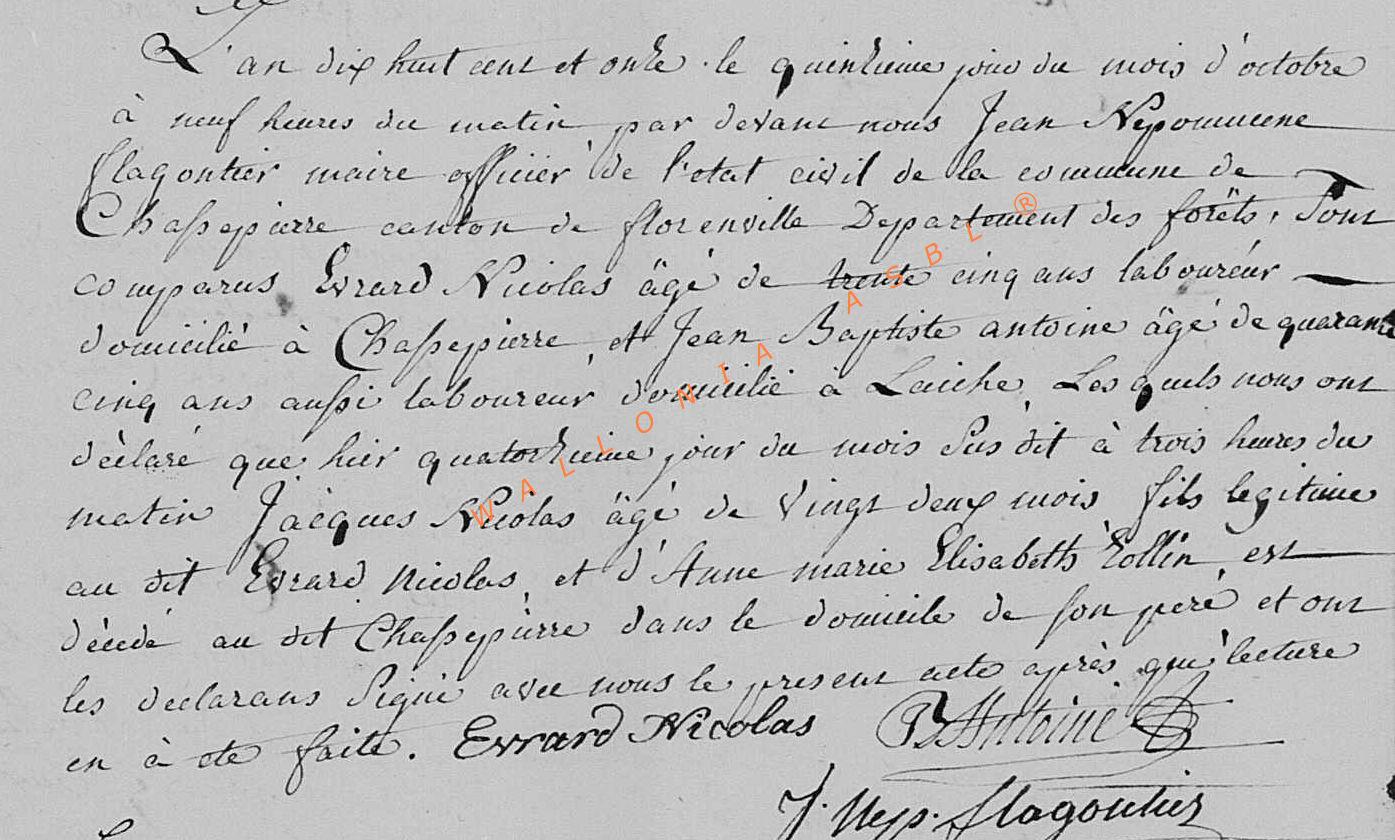 L'an dix huit cent et onze . le quinzieme jour du mois d'octobre
à neuf heures du matin par devant nous Jean Népomucene
flagontier maire officier de l'etat civil de la commune de
Chassepierre canton de florenville Departement des forêts, Sont
comparus Evrard Nicolas âgé de trente cinq ans laboureur
domicilié à Chassepierre, et Jean Baptiste antoine âgé de quarante
cinq ans aussi laboureur domicilié à Laiche, Les quels nous ont
déclaré que hier quatorzieme jour du mois Sus dit à trois heures du
matin Jacques Nicolas âgé de vingt deux mois fils legitime
au dit Evrard Nicolas, et d'Anne marie Elisabeth Collin, est
décédé au dit Chassepierre dans le domicile de son peré et ont
les declarans Signé avec nous le present acte après qu'e lecture
en à eté faite. Evrard Nicolas JBAntoine
J. Nep. flagontier
WALLONIA ASBL ®